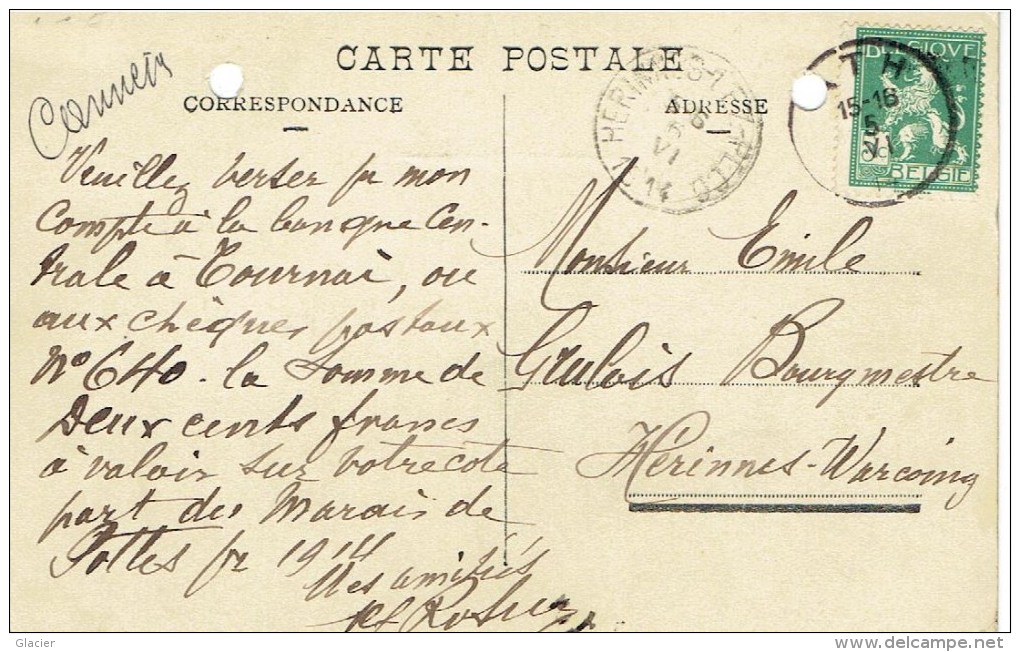 CARTE POSTALE
CORRESPONDANCE
Veuillez verser pr mon
Compte à la banque Cen-
trale à Tournai, ou
aux chèques postaux
No 640. la Somme de
Deux cents francs
à valoir sur votre cote
part des Marais de
Pottes pr 1914
Mes amitiés
ADRESSE
BELGIQUE
BELGIË
ATH
15-16
5
VI
HERINNES
VI
14
Monsieur Emile
Bourgmestre
Herinnes-Warcoing
Glacier
www.delcampe.net